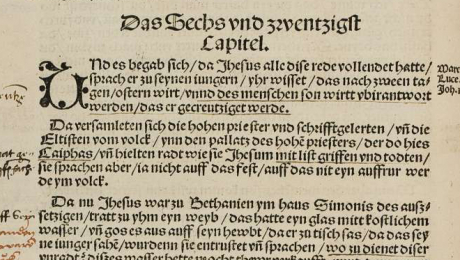 Das Sechs vnd zwentzigst
Capitel.
Vnd es begab sich/ da Jhesus alle dise rede vollendet hatte/
sprach er zu seynen iungern/ yhr wisset/ das nach zween ta-
gen/ ostern wirt/ vnnd des menschen son wirtt vbirantwort
werden/ das er gecreutziget werde.
Da versamleten sich die hohen priester vnd schrifftgelerten/ vñ die
Eltisten vom volck/ ynn den pallatz des hohẽ priesters/ der do hies
Caiphas/ vñ hielten radt wie sie Jhesum mit list griffen vnd todten/
sie sprachen aber/ ia nicht auff das fest/ auff das nit eyn auffrur wer
de ym volck.
Da nu Jhesus war zu Bethanien ym haus Simonis des ausz-
setzigen/ tratt zu yhm eyn weyb/ das hatte eyn glas mitt kostlichem
wasser/ vñ gos es aus auff seyn hewbt/ da er zu tisch sas/ da das sey
ne iunger sahẽ/ wurdenn sie entrustet vñ sprachen/ wo zu dienet diser
Marc
Luce.
Joh.